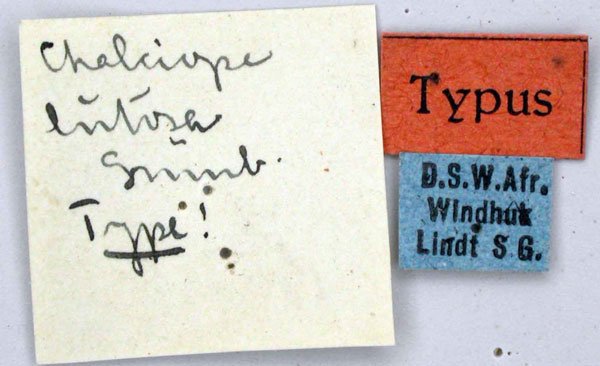 Chalciope
lutosa
Grünb.
Type!
Typus
D.S.W.Afr.
Windhuk
Lindt S G.